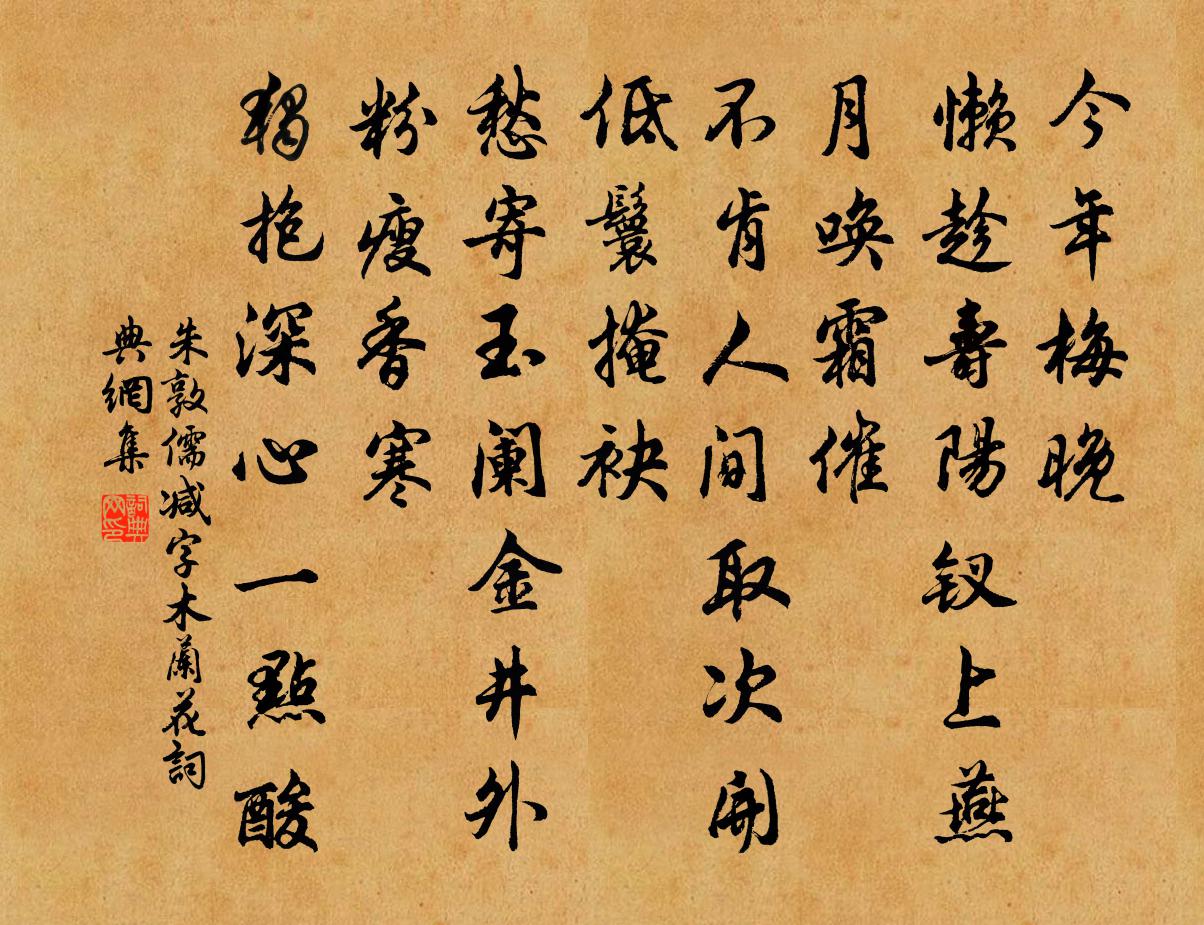 今年梅晚
懒趁壽陽钗上燕
月唤霜催
不肯人间取次開
低鬟掩袂
愁寄玉阑金井外
粉瘦香寒
獨抱深心一點酸
朱敦儒减字木蘭花詞
典網集
詞典網印